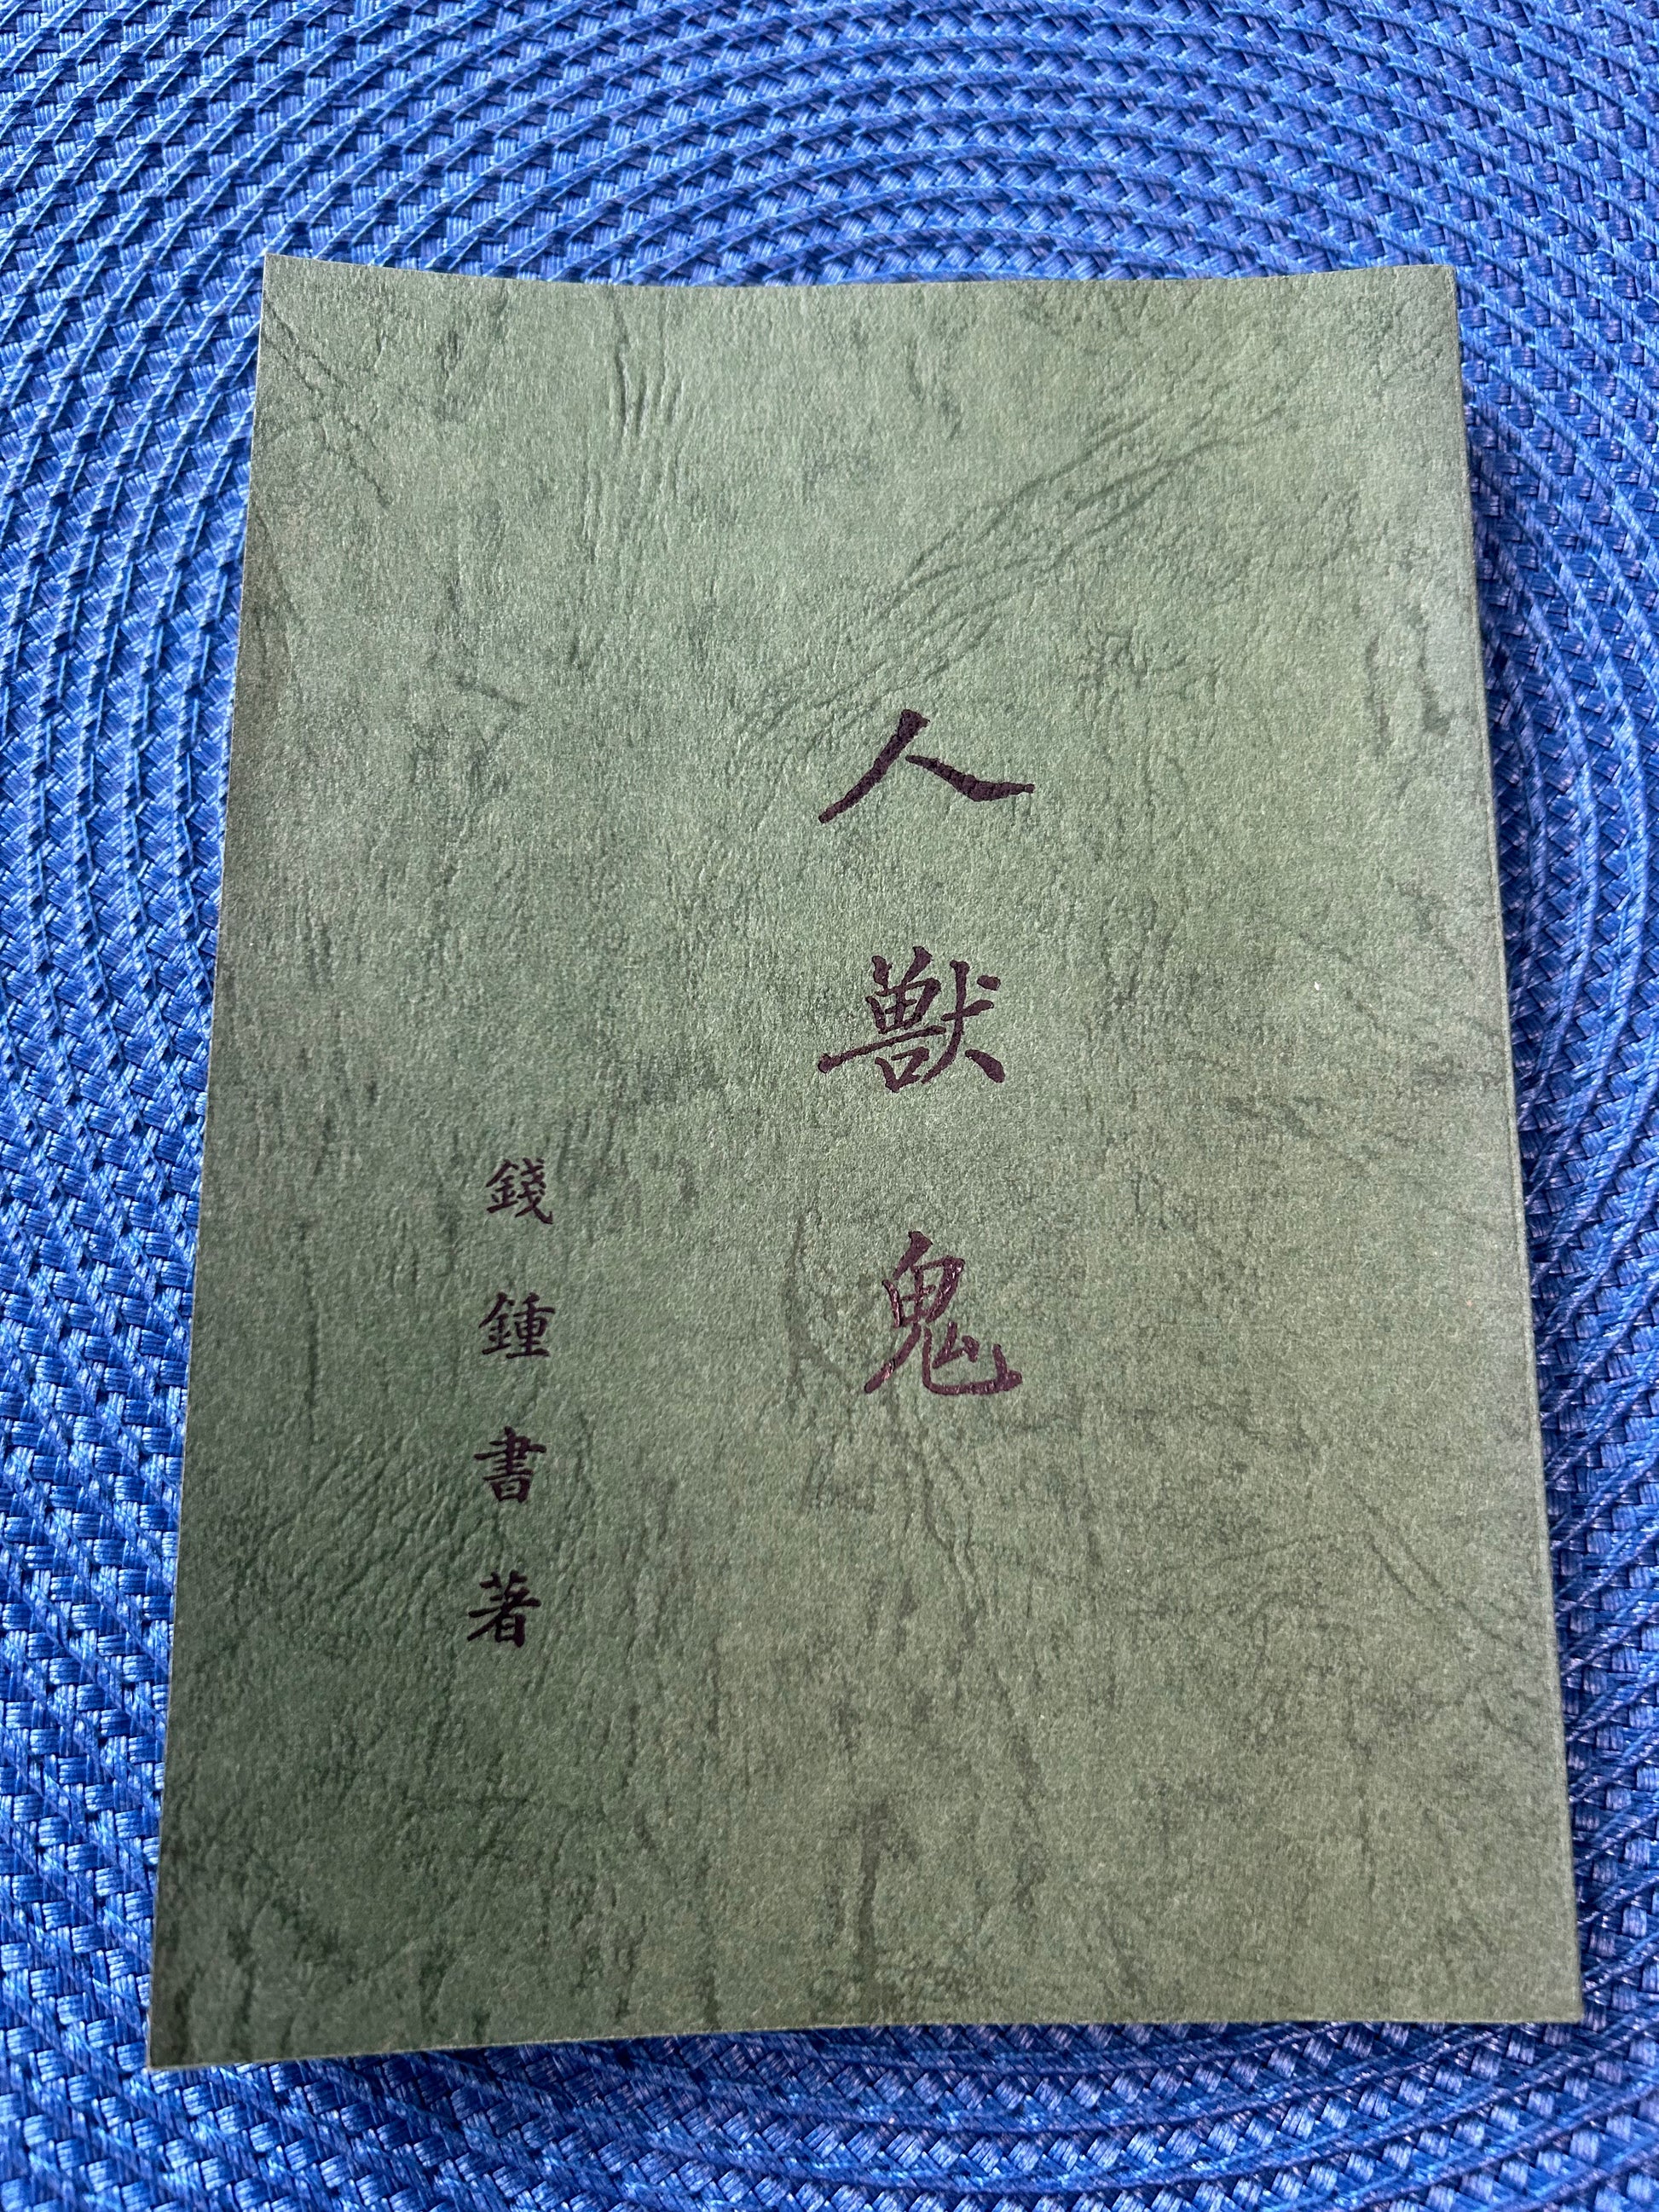 人獸鬼
錢鍾書著